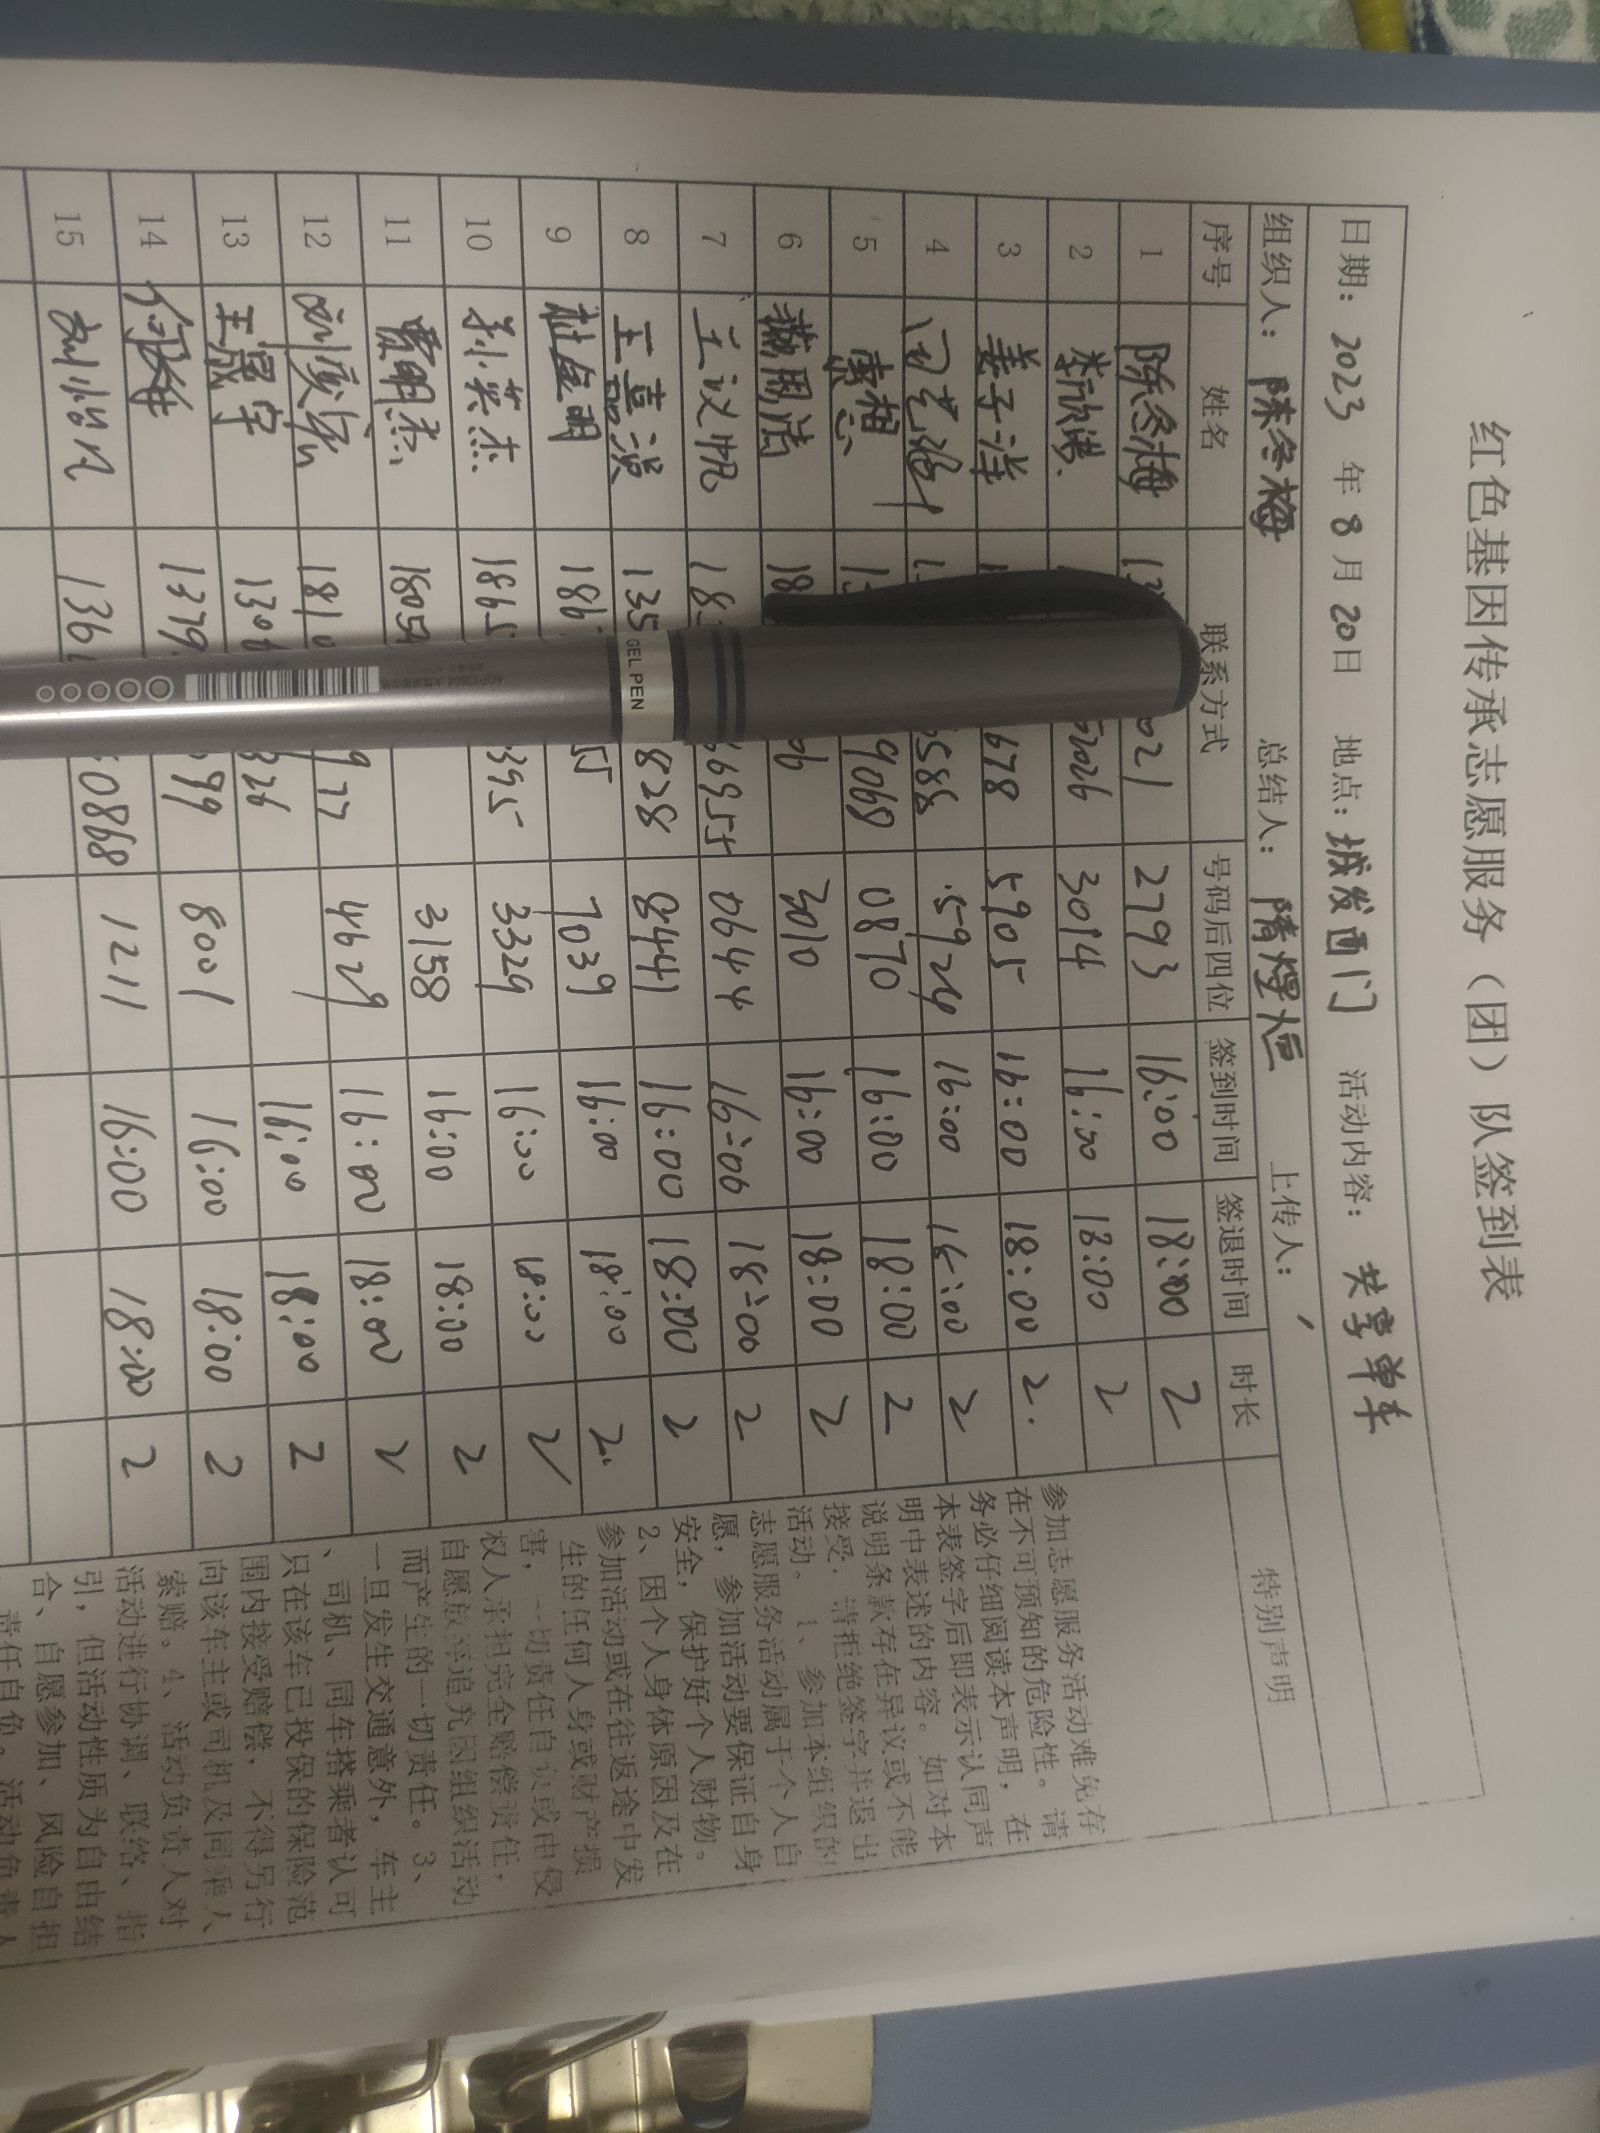 红色基因传承志愿服务（团）队签到表
日期：2023 年 8 月 20日 地点：城发西门 活动内容：共享单车
组织人：陈冬梅 总结人：隋煜恒 上传人：
序号 姓名 联系方式 号码后四位 签到时间 签退时间 时长 特别声明
1 陈冬梅 021 2793 16:00 18:00 2
2 3014 16:00 18:00 2
3 姜子洋 678 5905 16:00 18:00 2.
4 5588 5924 16:00 16:00 2
5 9068 0870 16:00 18:00 2
6 18 96 3010 16:00 18:00 2
7 王议帆 18 6955 0644 16:00 18:00 2
8 135 828 8441 16:00 18:00 2
9 杜金明 186 55 7039 16:00 18:00 2.
10 孙英杰 1865 395 3329 16:00 18:00 2
11 贾明杰 1805 3158 16:00 18:00 2
12 1810 977 4629 16:00 18:00 2
13 1308 326 16:00 18:00 2
14 1379 099 8001 16:00 18:00 2
15 136 0868 1211 16:00 18:00 2
参加志愿服务活动难免存
在不可预知的危险性。请
务必仔细阅读本声明，在
本表签字后即表示认同声
明中表述的内容。如对本
说明条款存在异议或不能
接受，请拒绝签字并退出
活动。1、参加本组织的
志愿服务活动属于个人自
愿，参加活动要保证自身
安全，保护好个人财物。
2、因个人身体原因及在
参加活动或在往返途中发
生的任何人身或财产损
害，一切责任自负或由侵
权人承担完全赔偿责任，
自愿放弃追究因组织活动
而产生的一切责任。3、
一旦发生交通意外，车主
、司机、同车搭乘者认可
只在该车已投保的保险范
围内接受赔偿，不得另行
向该车主或司机及同乘人
索赔。4、活动负责人对
活动进行协调、联络、指
引，但活动性质为自由结
合、自愿参加、风险自担
责任自负。活动负责人
GEL PEN